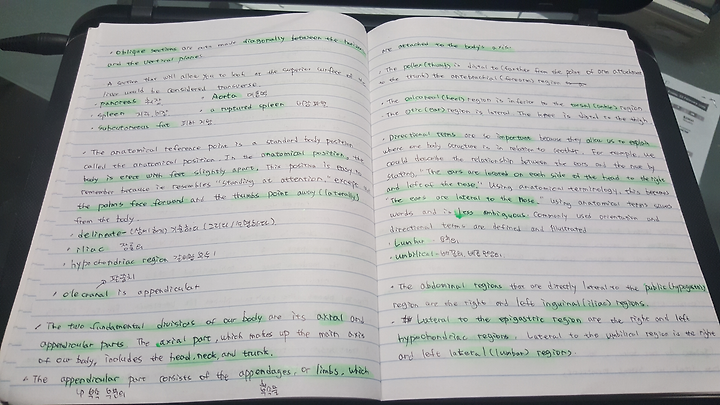 • oblique sections are cuts made diagonally between the horizontal
and the vertical planes.
A section that will allow you to look at the superior surface of the
liver would be considered transverse.
• pancreas 췌장 • Aorta 대동맥
• spleen 비장 • a ruptured spleen
• subcutaneous fat 피하 지방
• The anatomical reference point is a standard body position
called the anatomical position. In the anatomical position, the
body is erect with feet slightly apart. This position is easy to
remember because it resembles "standing at attention," except
the palms face forward and the thumbs point away (laterally)
from the body.
• delineate -
• iliac 장골의
• hypochondriac region
• olecranal is appendicular
• The two fundamental divisions of our body are its axial and
appendicular parts. The axial part, which makes up the main axis
of our body, includes the head, neck, and trunk.
• The appendicular part consists of the appendages, or limbs, which
are attached to the body's axis.
• The pollex (thumb) is distal to (farther from the point of one attachment
to the trunk) the antebrachial (forearm) region.
• The calcaneal (heel) region is inferior to the tarsal (ankle) region.
The otic (ear) region is lateral. The is distal to the thigh.
• Directional terms are so important because they allow us to explain
where one body structure is in relation to another. For example we
could describe the relationship between the ears and the nose by
stating, "The ears are located on each side of the head to the right
and left of the nose." Using anatomical terminology, this becomes
"The ears are lateral to the nose." Using anatomical terms saves
words and is less ambiguous. Commonly used orientation and
directional terms are defined and illustrated.
• Lumbar - 요추의
• umbilical -
• The abdominal regions that are directly lateral to the pubic (hypogastric)
region are the right and left inguinal (iliac) regions.
• Lateral to the epigastric region are the right and left
hypochondriac regions. Lateral to the umbilical region is the right
and left lateral (lumbar) regions.